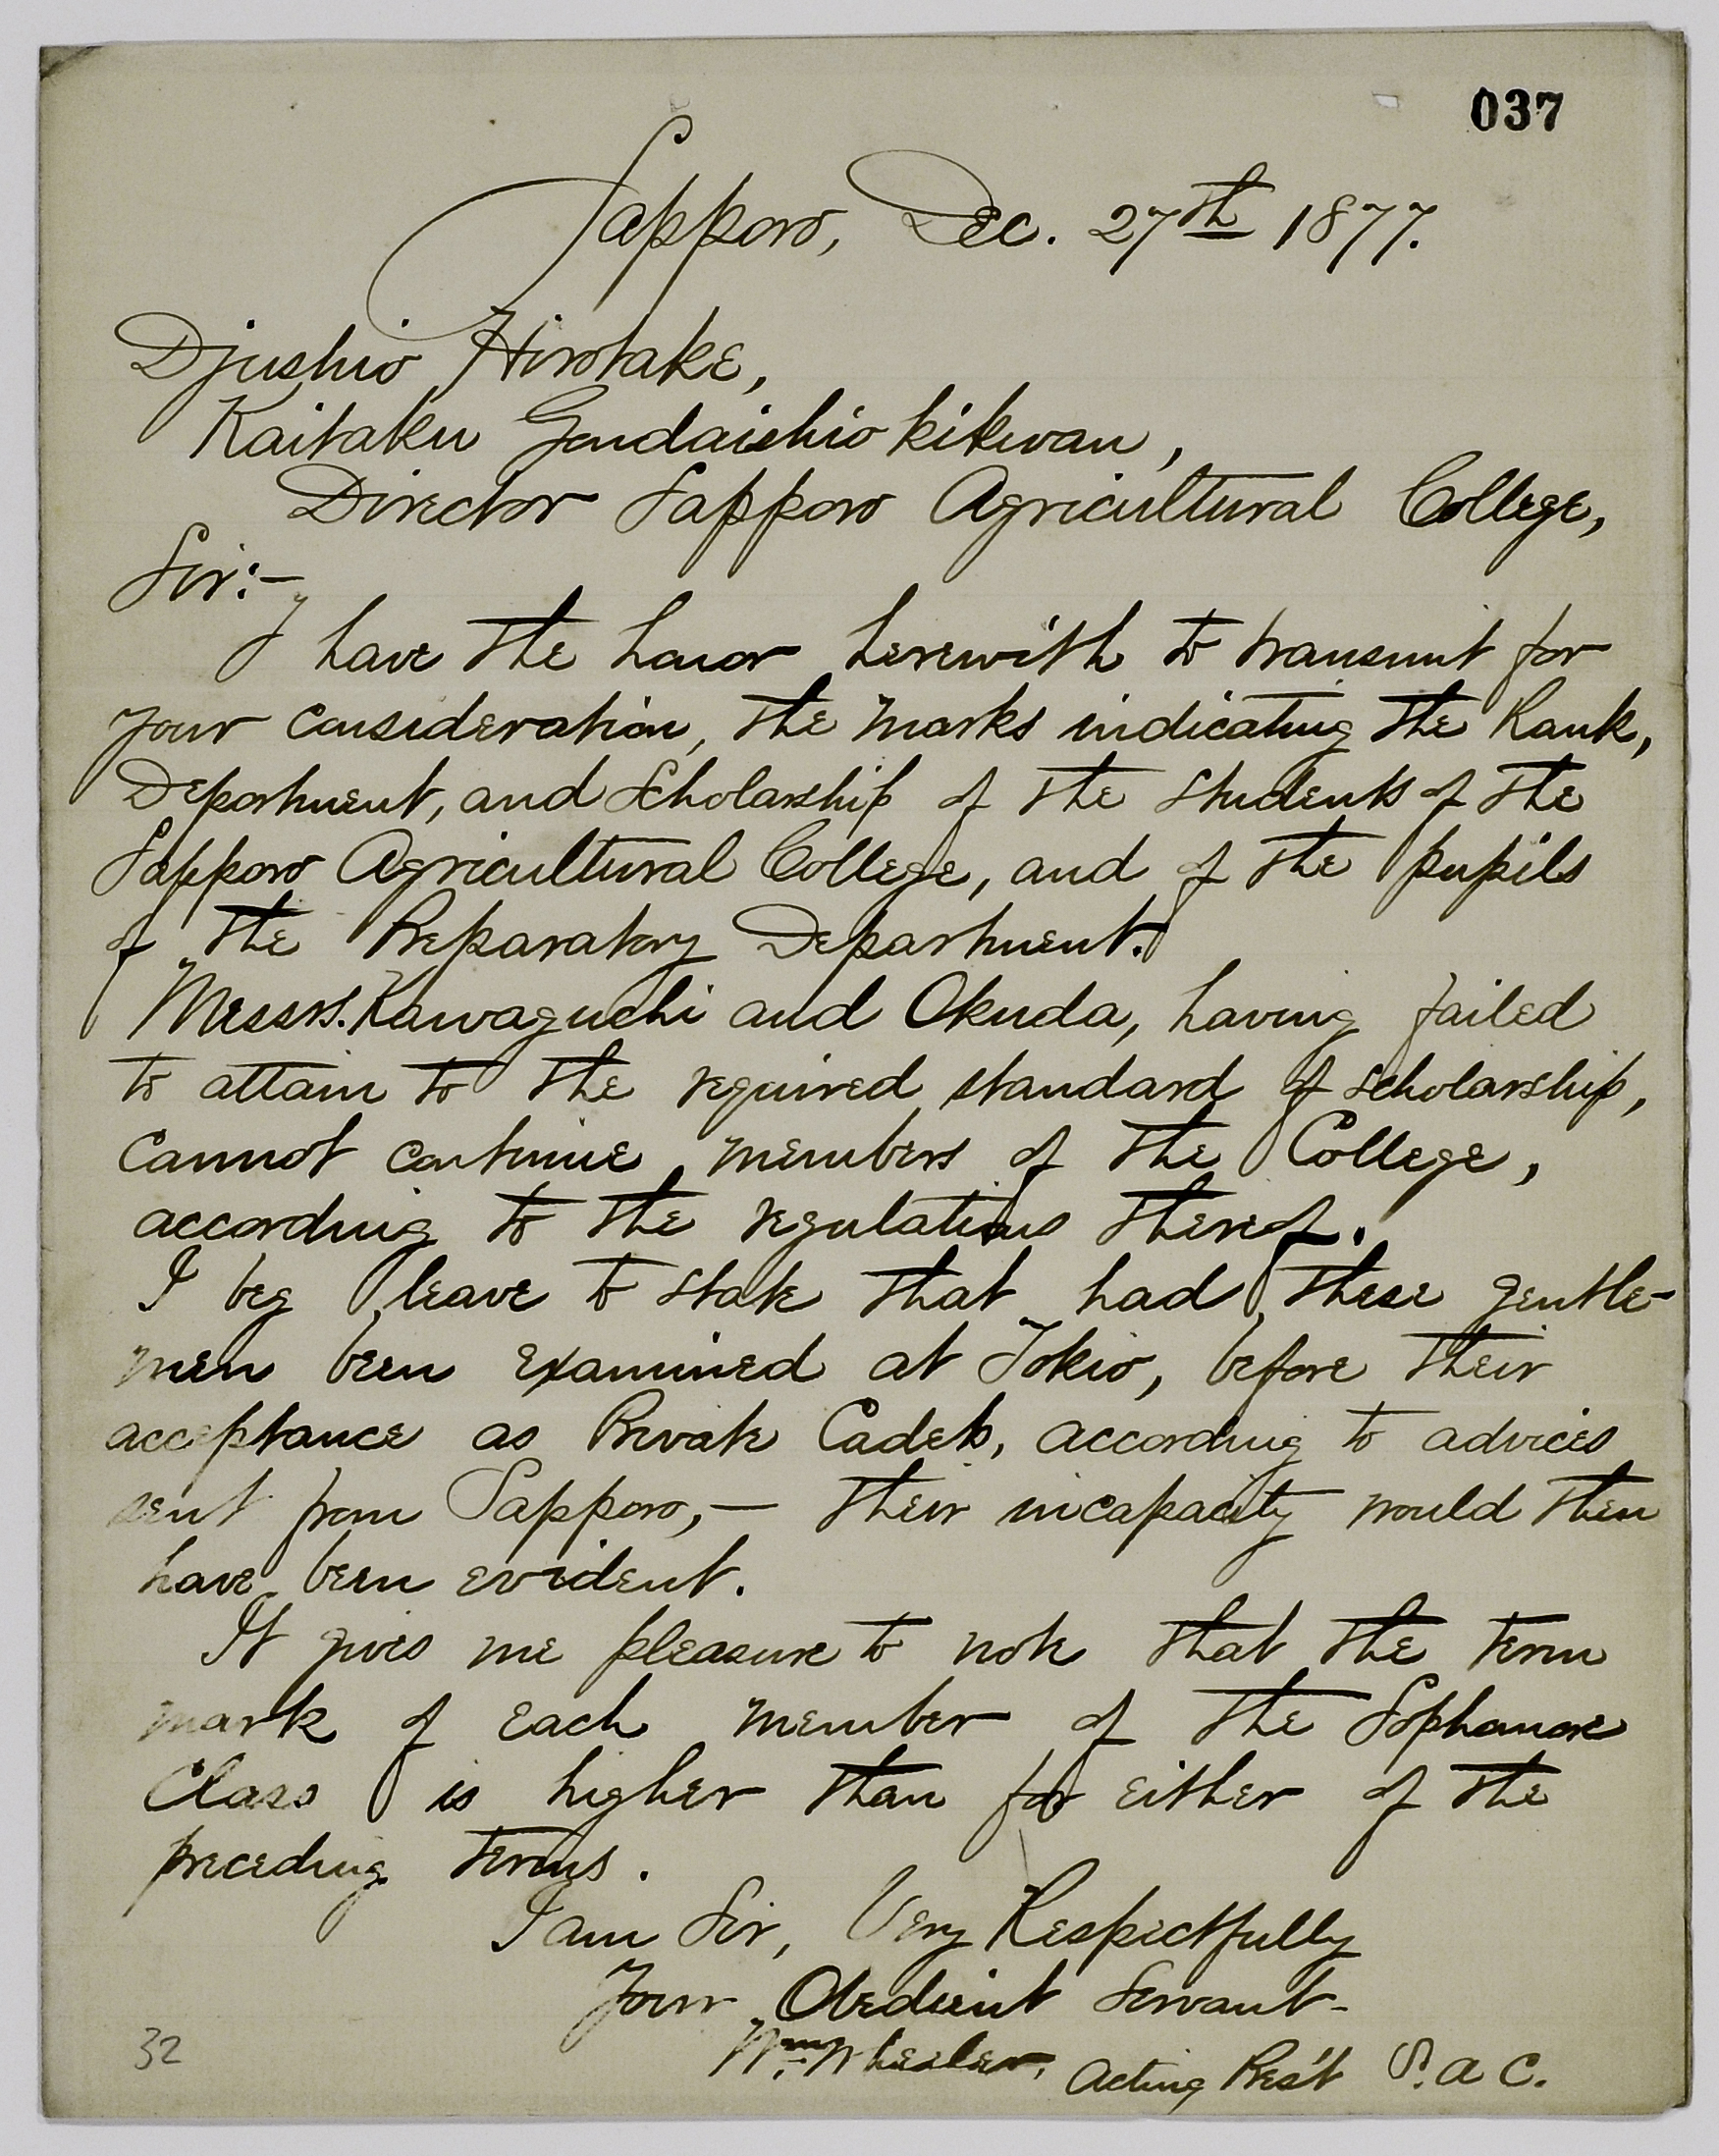 037
Sapporo, Dec. 27th 1877.
Djushio Hirotake,
Kaitaku Gondaishiokikwan,
Director Sapporo Agricultural College,
Sir:-
I have the honor herewith to transmit for
your consideration, the marks indicating the Rank,
Deportment, and Scholarship of the students of the
Sapporo Agricultural College, and of the pupils
of the Preparatory Department.
Messrs. Kawaguchi and Okuda, having failed
to attain to the required standard of scholarship,
cannot continue members of the College,
according to the regulations thereof.
I beg leave to state that had these gentle-
men been examined at Tokio, before their
acceptance as Private Cadets, according to advices
sent from Sapporo,— their incapacity would then
have been evident.
It gives me pleasure to note that the term
mark of each member of the Sophomore
Class is higher than for either of the
preceding terms.
I am Sir, Very Respectfully
Your Obedient Servant-
Wm. Wheeler, Acting Pres't S. A. C.
32